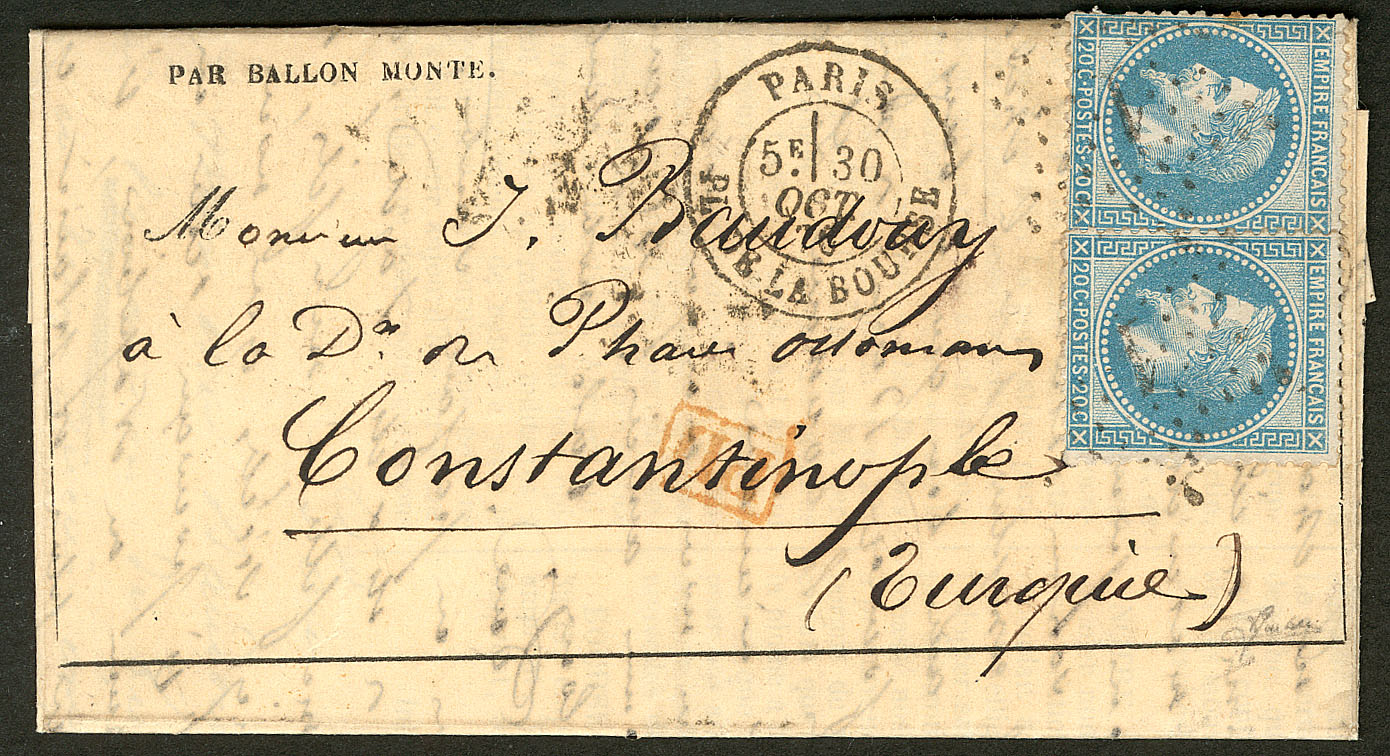 PAR BALLON MONTÉ.
PARIS
5E 30
OCT.
70
PL. DE LA BOURSE
EMPIRE FRANÇAIS
20C·POSTES·20C
EMPIRE FRANÇAIS
20C·POSTES·20C
1
1
Monsieur J. Baudouy
à la Dn des Phares ottomans
Constantinople
P.D.
(Turquie)